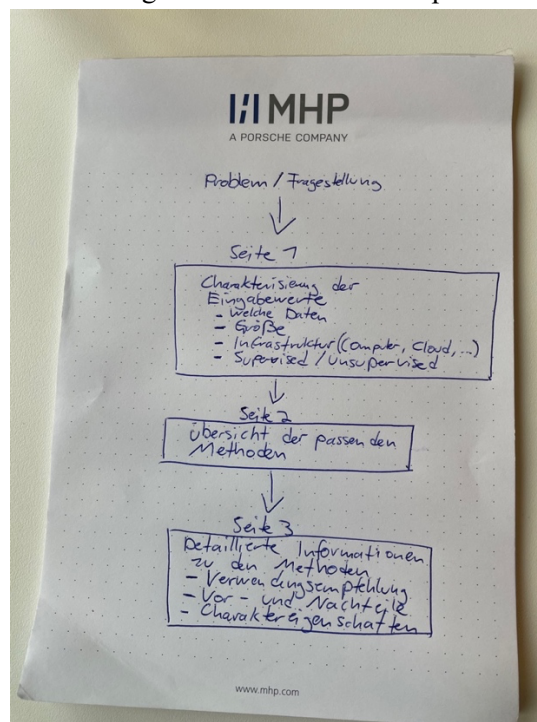 MHP
A PORSCHE COMPANY
Problem / Fragestellung
Seite 1
Charakterisierung der
Eingabewerte
- Welche Daten
- Größe
- Infrastruktur (Computer, Cloud, ...)
- Supervised / Unsupervised
Seite 2
Übersicht der passenden
Methoden
Seite 3
Detaillierte Informationen
zu den Methoden
- Verwendungsempfehlung
- Vor- und Nachteile
- Charaktereigenschaften
www.mhp.com